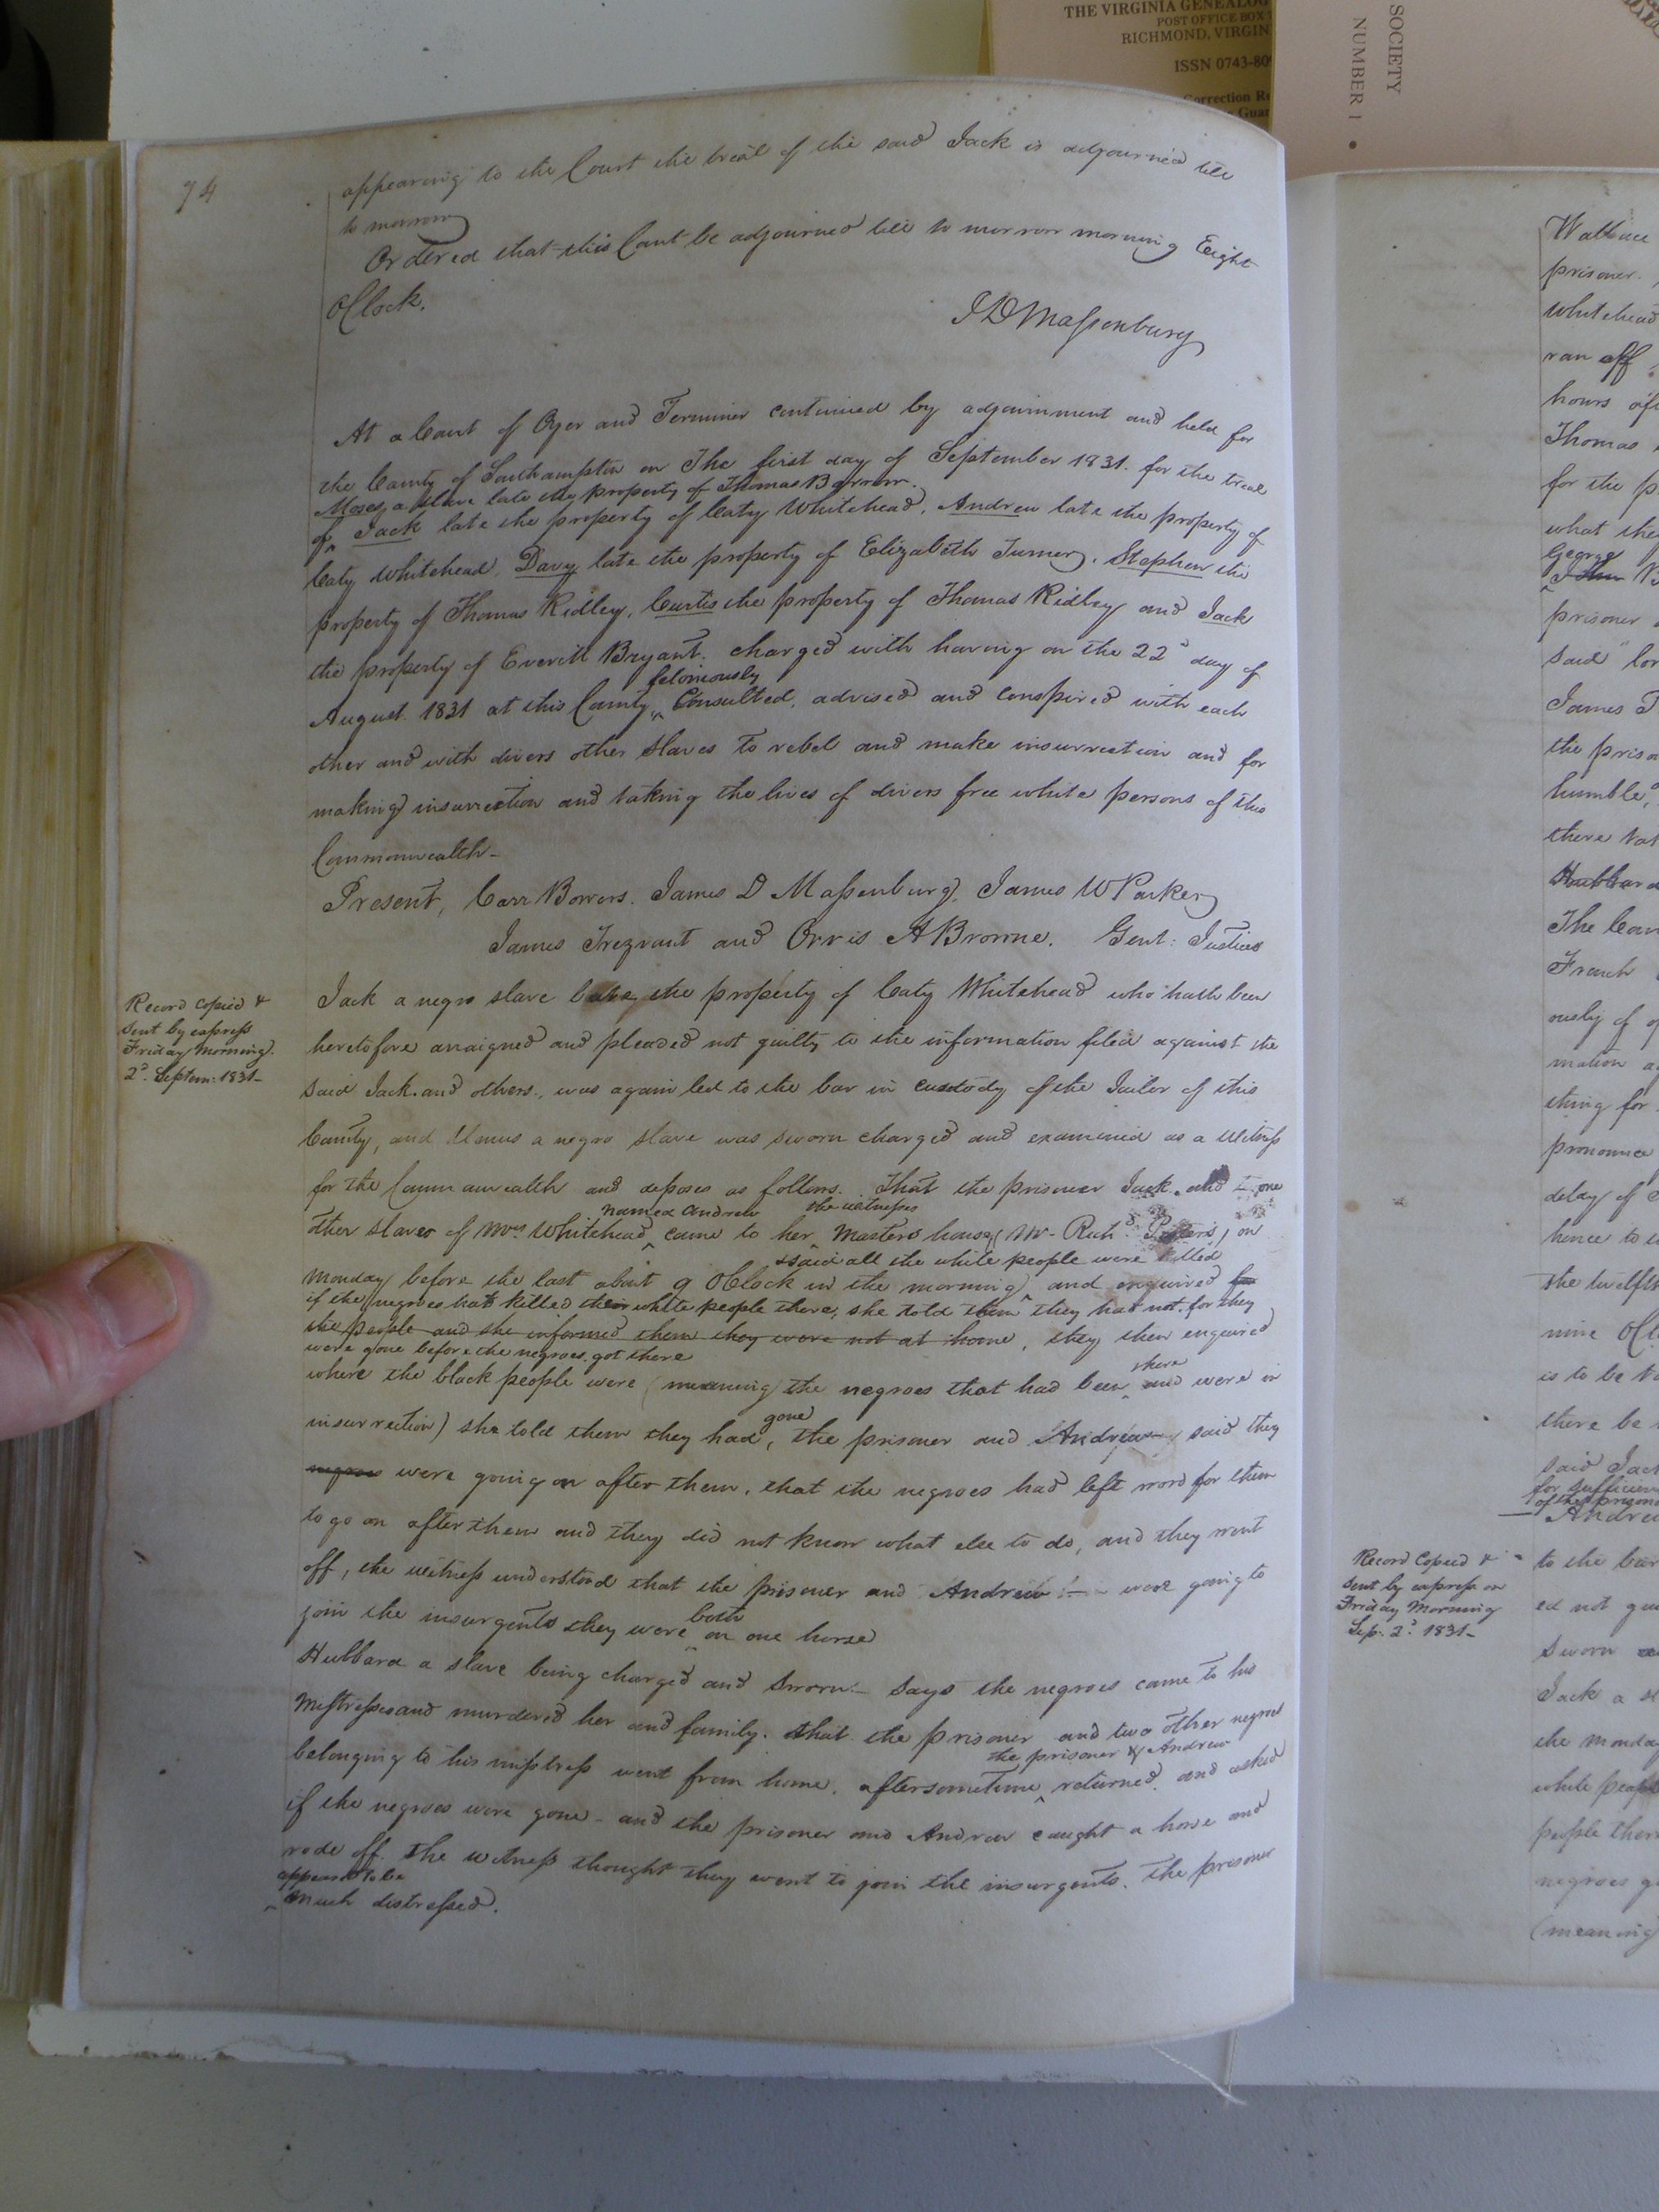 THE VIRGINIA GENEALOG
POST OFFICE BOX
RICHMOND, VIRGIN
ISSN 0743-809
Correction Re
Guar
SOCIETY
NUMBER 1
74
appearing to the Court the trial of the said Jack is adjourned till
to morrow
Ordered that this Court be adjourned till to morrow morning Eight
OClock.
JDMassenburg
At a Court of Oyer and Terminer continued by adjournment and held for
the County of Southampton on The first day of September 1831. for the treal
Moses, a slave late the property of Thomas Barrow.
of Jack late the property of Caty Whitehead, Andrew late the property of
Caty Whitehead, Davy late the property of Elizabeth Turner, Stephen the
property of Thomas Ridley, Curtis the property of Thomas Ridley and Jack
the property of Everitt Bryant. charged with having on the 22d day of
feloniously
August 1831 at this County Consulted, advised and conspired with each
other and with divers other slaves to rebel and make insurrection and for
making insurrection and taking the lives of divers free white persons of this
Commonwealth-
Present, Carr Bowers. James D Massenburg, James W Parker
James Trezvant and Orris A Browne. Gent: Justices
Record Copied &
sent by express
Friday Morning.
2d. Septem: 1831-
Jack a negro slave late the property of Caty Whitehead who hath been
heretofore arraigned and pleaded not guilty to the information filed against the
said Jack and others., was again led to the bar in custody of the Jailor of this
County, and Venus a negro slave was sworn charged and examined as a Witness
for the Commonwealth and deposes as follows. That the prisoner Jack. and one
named Andrew the witnesses
other slaves of Mrs Whitehead came to her Masters house (Mr. Richd. Porters) on
& said all the white people were killed
Monday before the last about 9 OClock in the morning and enquired
if the negroes had killed their white people there, she told them they had not. for they
the people and she informed them they were not at home, they then enquired
were gone before the negroes got there
there
where the black people were (meaning the negroes that had been and were in
gone
insurrection) she told them they had, the prisoner and Andrew said they
negroes were going on after them, that the negroes had left word for them
to go on after them and they did not know what else to do, and they went
off, the witness understood that the prisoner and Andrew were going to
both
join the insurgents they were on one horse
Hubbard a slave being charged and Sworn- Says the negroes came to his
Mistresses and murdered her and family. that the prisoner and two other negroes
the prisoner & Andrew
belonging to his mistress went from home. after sometime returned. and asked
if the negroes were gone - and the prisoner and Andrew caught a horse and
rode off. the witness thought they went to join the insurgents. the prisoner
appeared to be
much distressed.
Wallace
prisoner.
whitehead
ran off
hours
Thomas
for the
what they
George
John
prisoner
said
James
the
humble,
there
Hubbard
The
French
of
mation
thing for
pronounce
delay of
hence to
the
nine
is to be
there be
said Jack
for
of the prisoner
Andrew
Record Copied &
sent by express on
Friday Morning
Sep: 2d. 1831-
to the bar
ed not
sworn
Jack a
the monday
white people
people there
negroes
(meaning